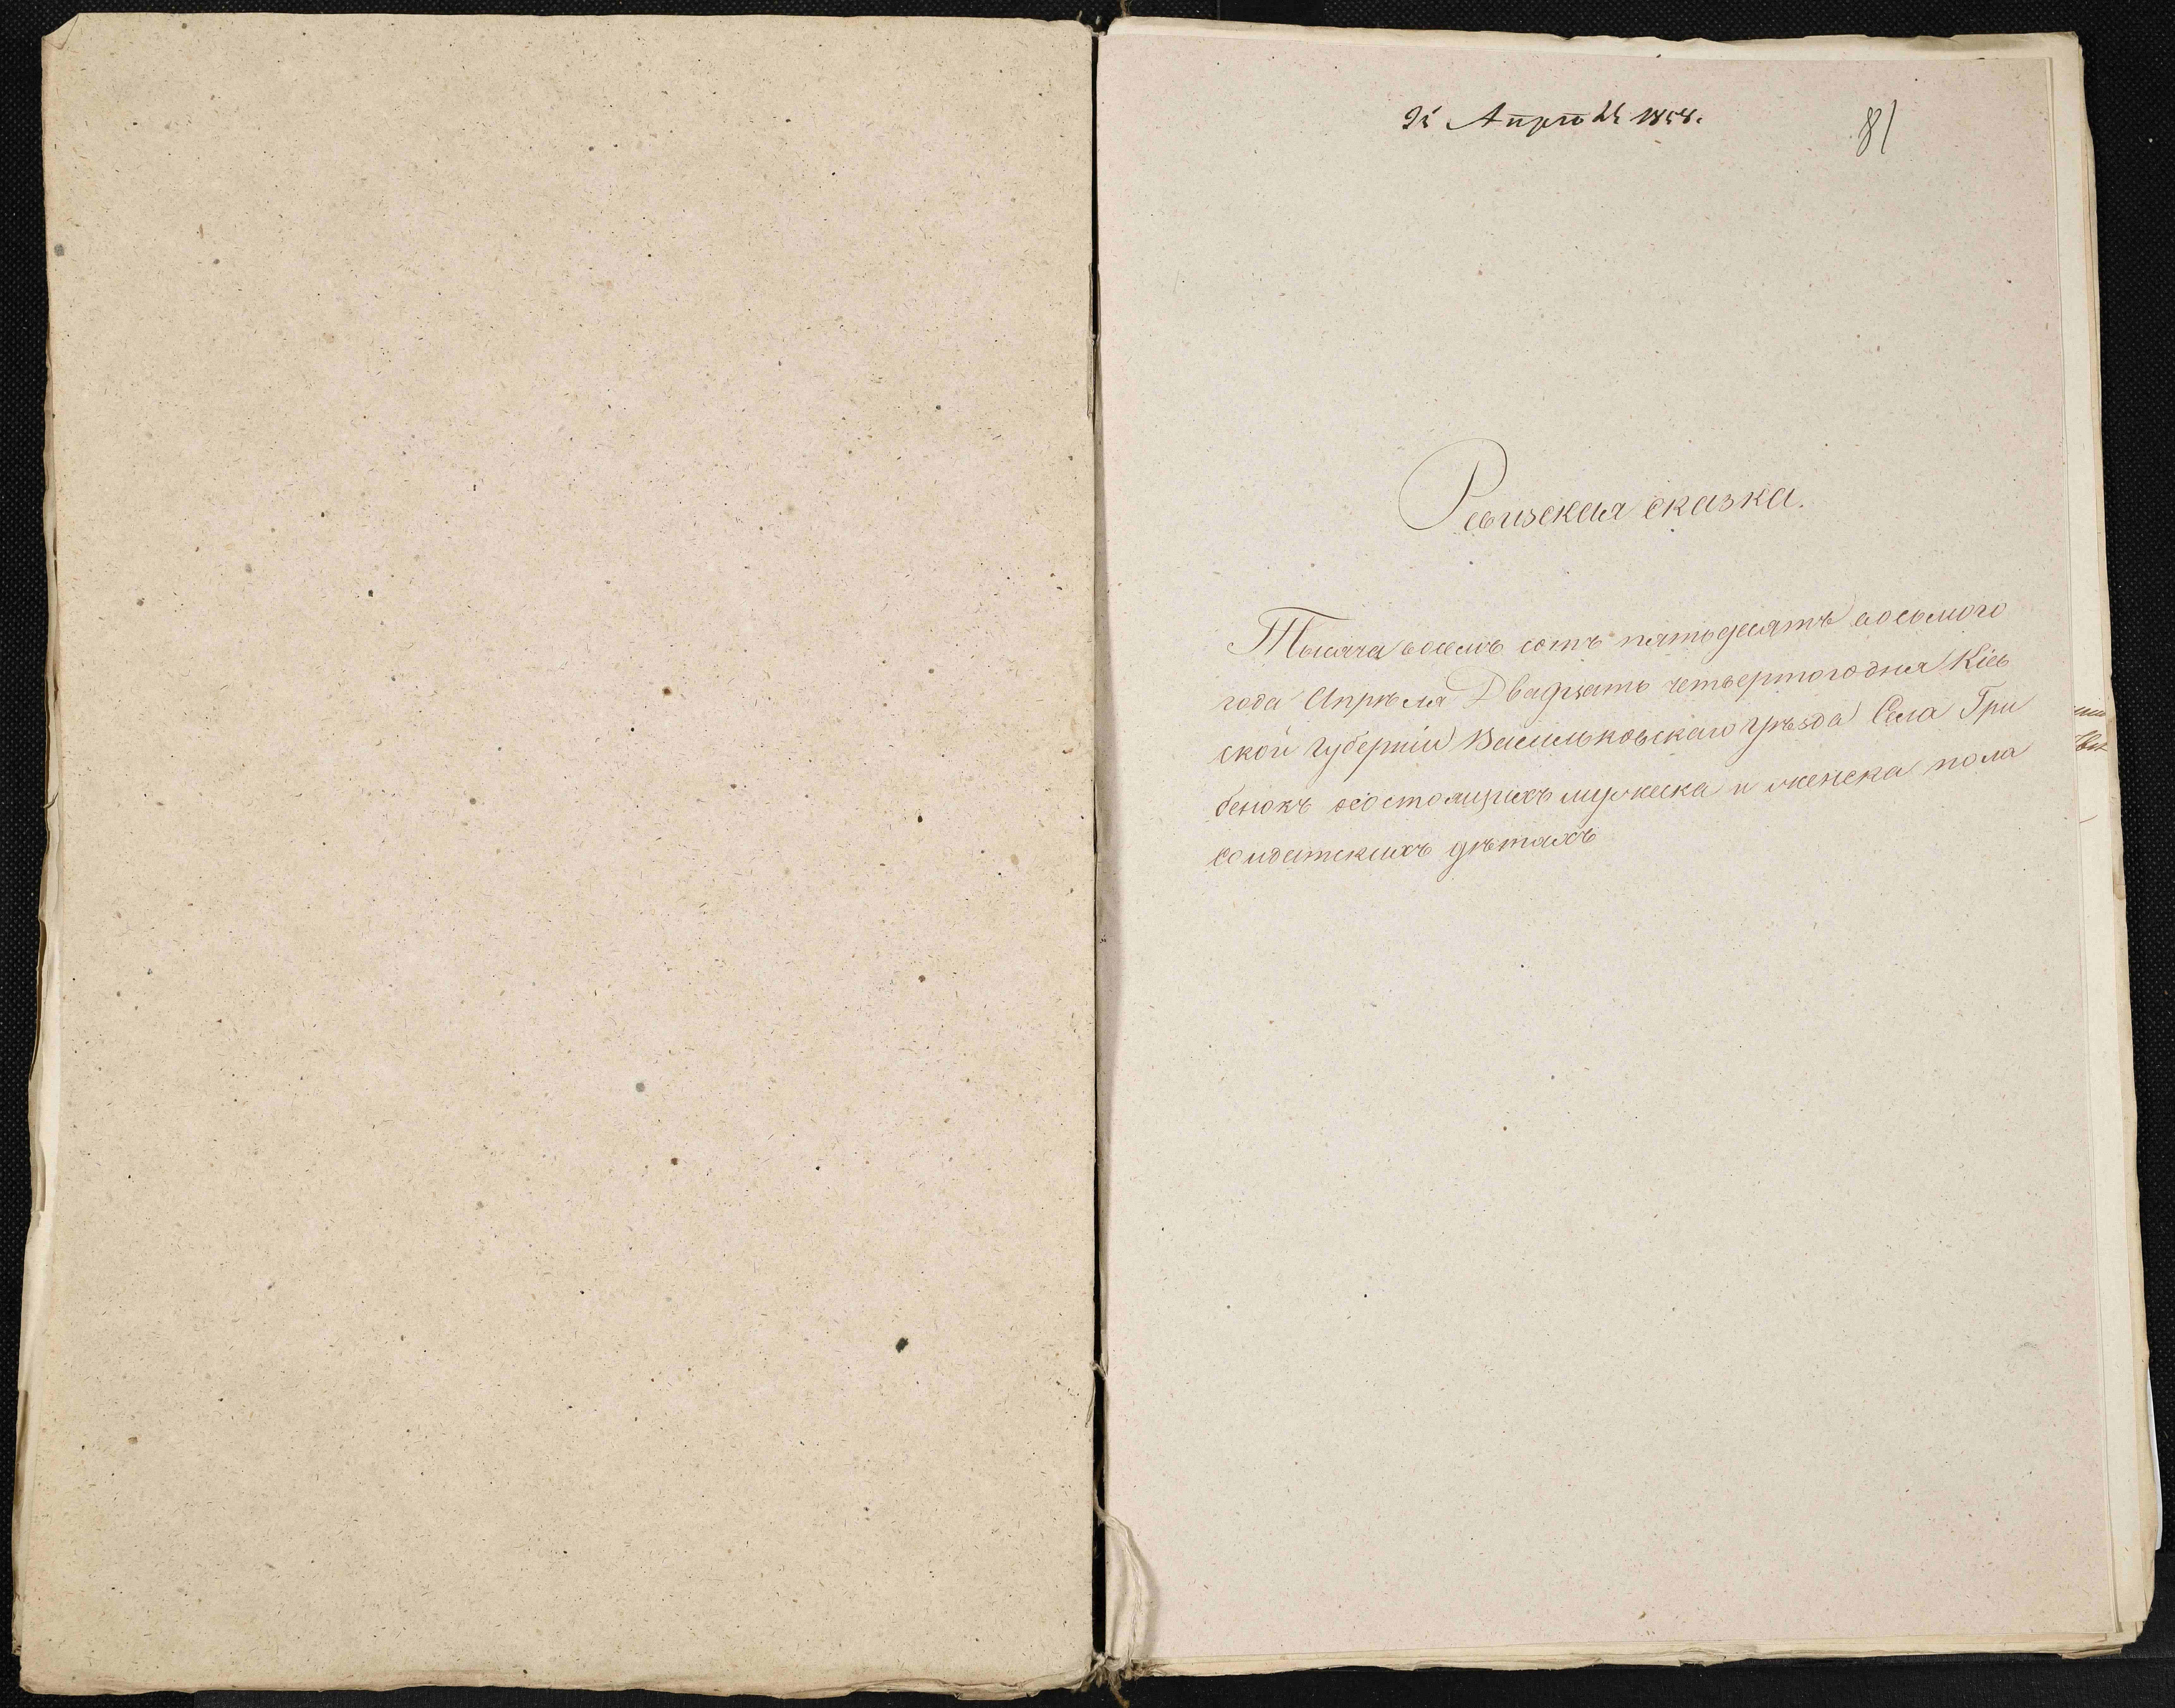 Апрѣля 1858.
81
Ревизская сказка.
Тысяча восемъ сотъ пятьдесятъ восьмого
года Апрѣля Двадцать четвертого дня Кіев
ской Губерніи Васильковскаго уѣзда Села Гри
бенокъ о состоящихъ мужеска и женска пола
солдатскихъ дѣтяхъ